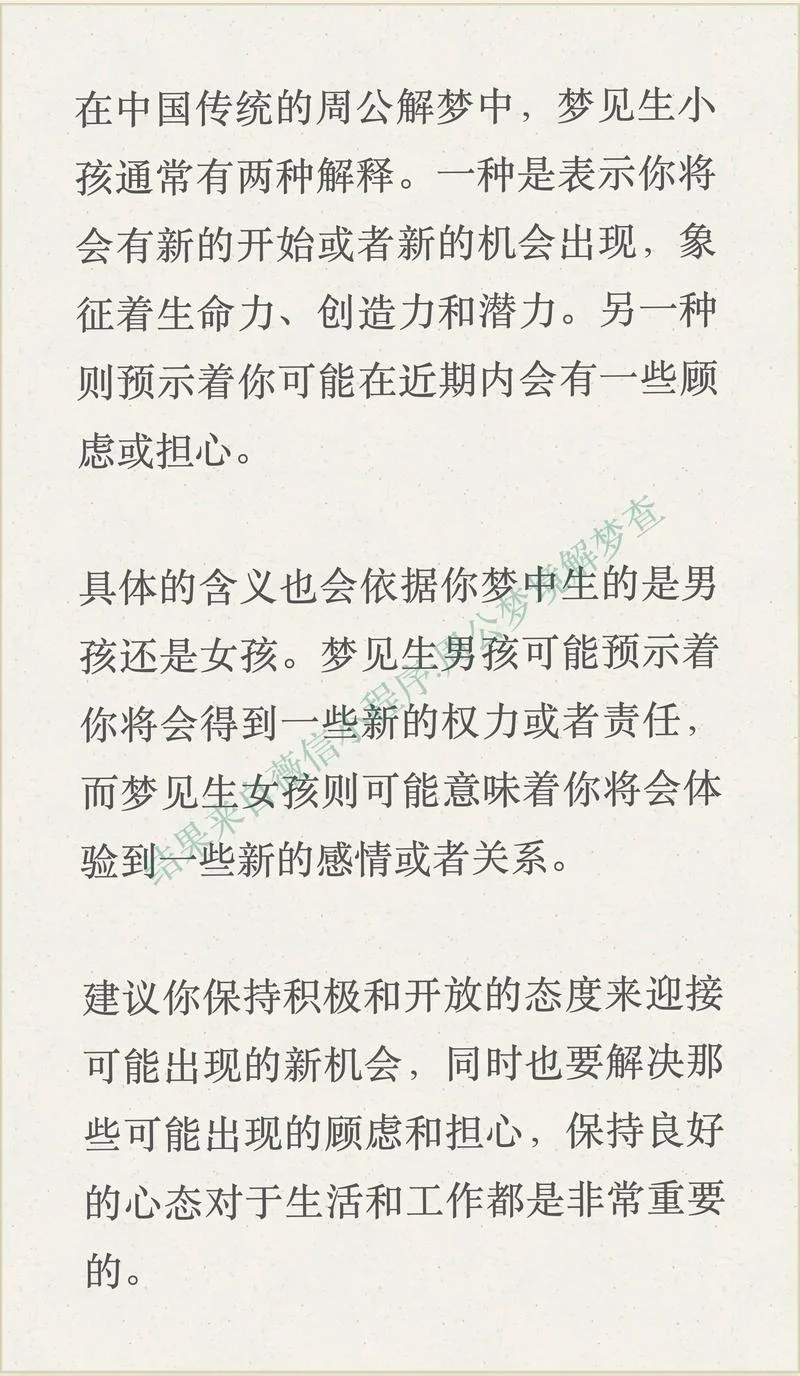 在中国传统的周公解梦中，梦见生小
孩通常有两种解释。一种是表示你将
会有新的开始或者新的机会出现，象
征着生命力、创造力和潜力。另一种
则预示着你可能在近期内会有一些顾
虑或担心。
具体的含义也会依据你梦中生的是男
孩还是女孩。梦见生男孩可能预示着
你将会得到一些新的权力或者责任，
而梦见生女孩则可能意味着你将会体
验到一些新的感情或者关系。
建议你保持积极和开放的态度来迎接
可能出现的新机会，同时也要解决那
些可能出现的顾虑和担心，保持良好
的心态对于生活和工作都是非常重要
的。
结果来自薇信小程序:周公梦境解梦查